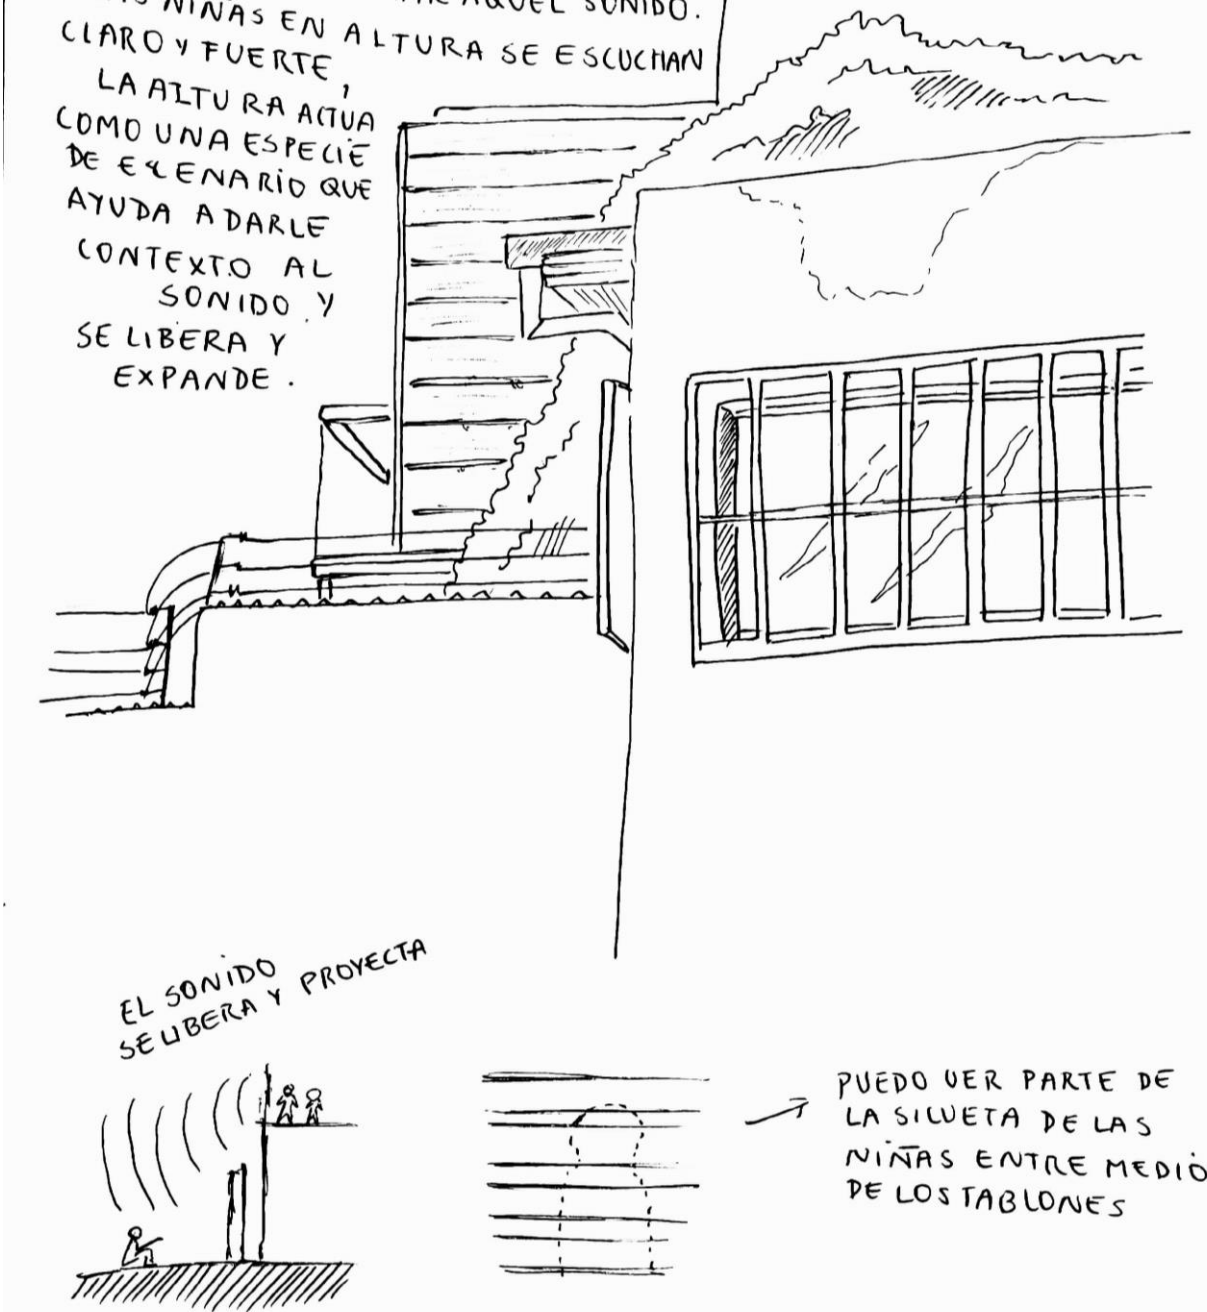 AQUEL SONIDO.
NIÑAS EN ALTURA SE ESCUCHAN
CLARO Y FUERTE,
LA ALTURA ACTÚA
COMO UNA ESPECIE
DE ESCENARIO QUE
AYUDA A DARLE
CONTEXTO AL
SONIDO Y
SE LIBERA Y
EXPANDE.
EL SONIDO
SE LIBERA Y PROYECTA
PUEDO VER PARTE DE
LA SILUETA DE LAS
NIÑAS ENTRE MEDIO
DE LOS TABLONES